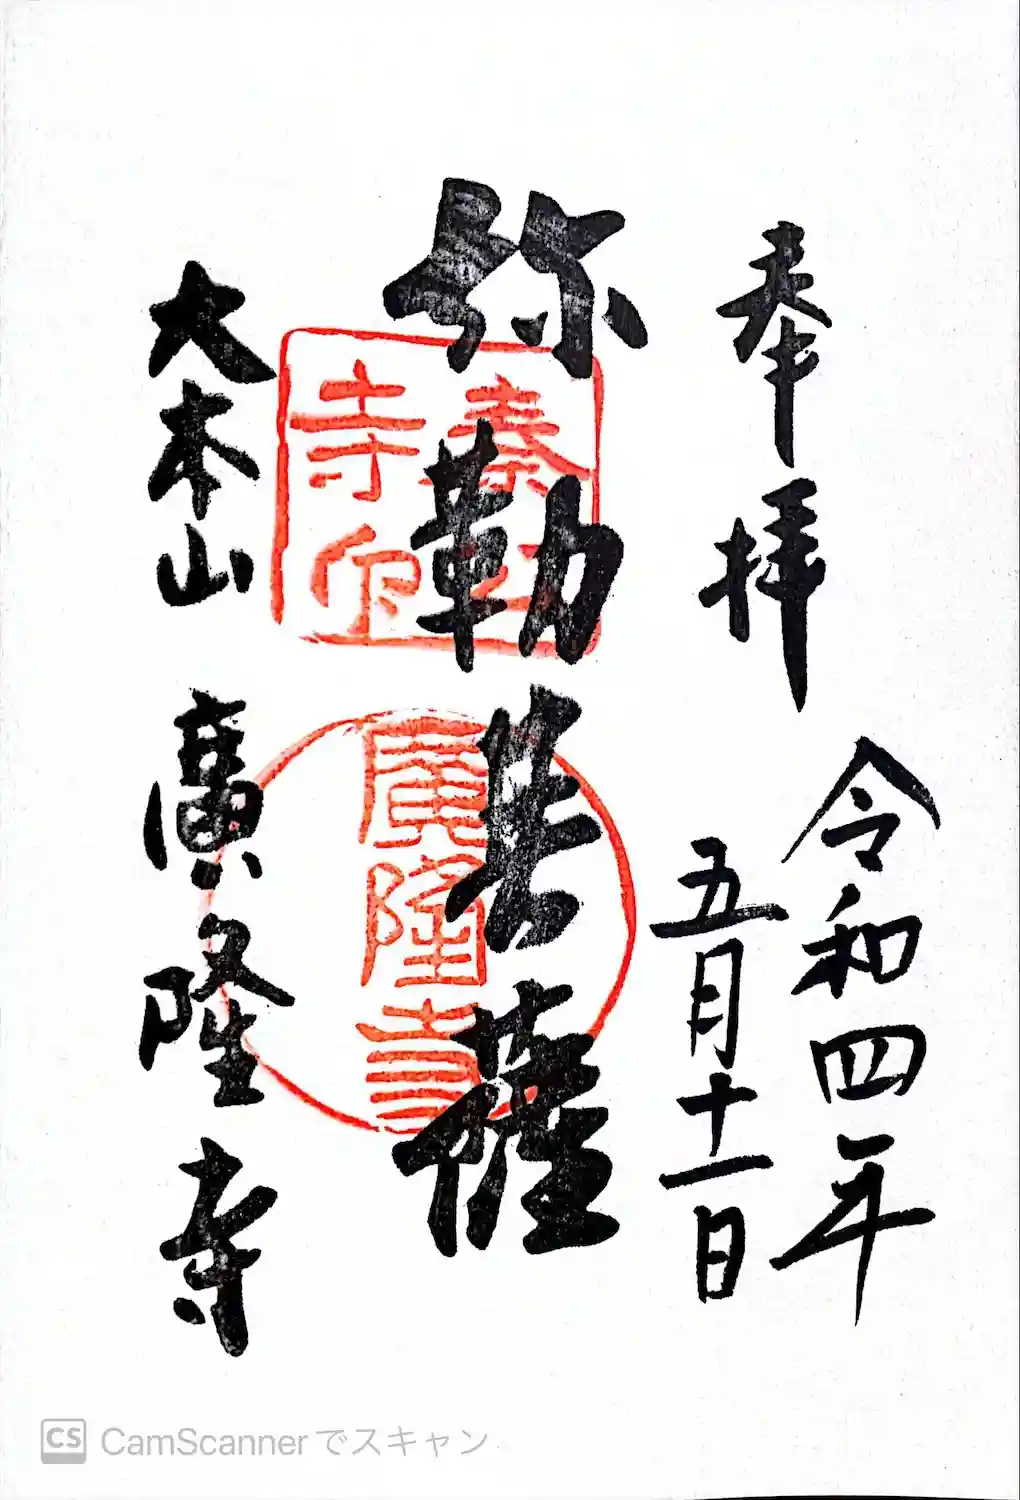 奉拝
令和四年
五月十一日
弥勒菩薩
大本山 廣隆寺
秦公
寺印
廣隆寺
CS CamScanner でスキャン